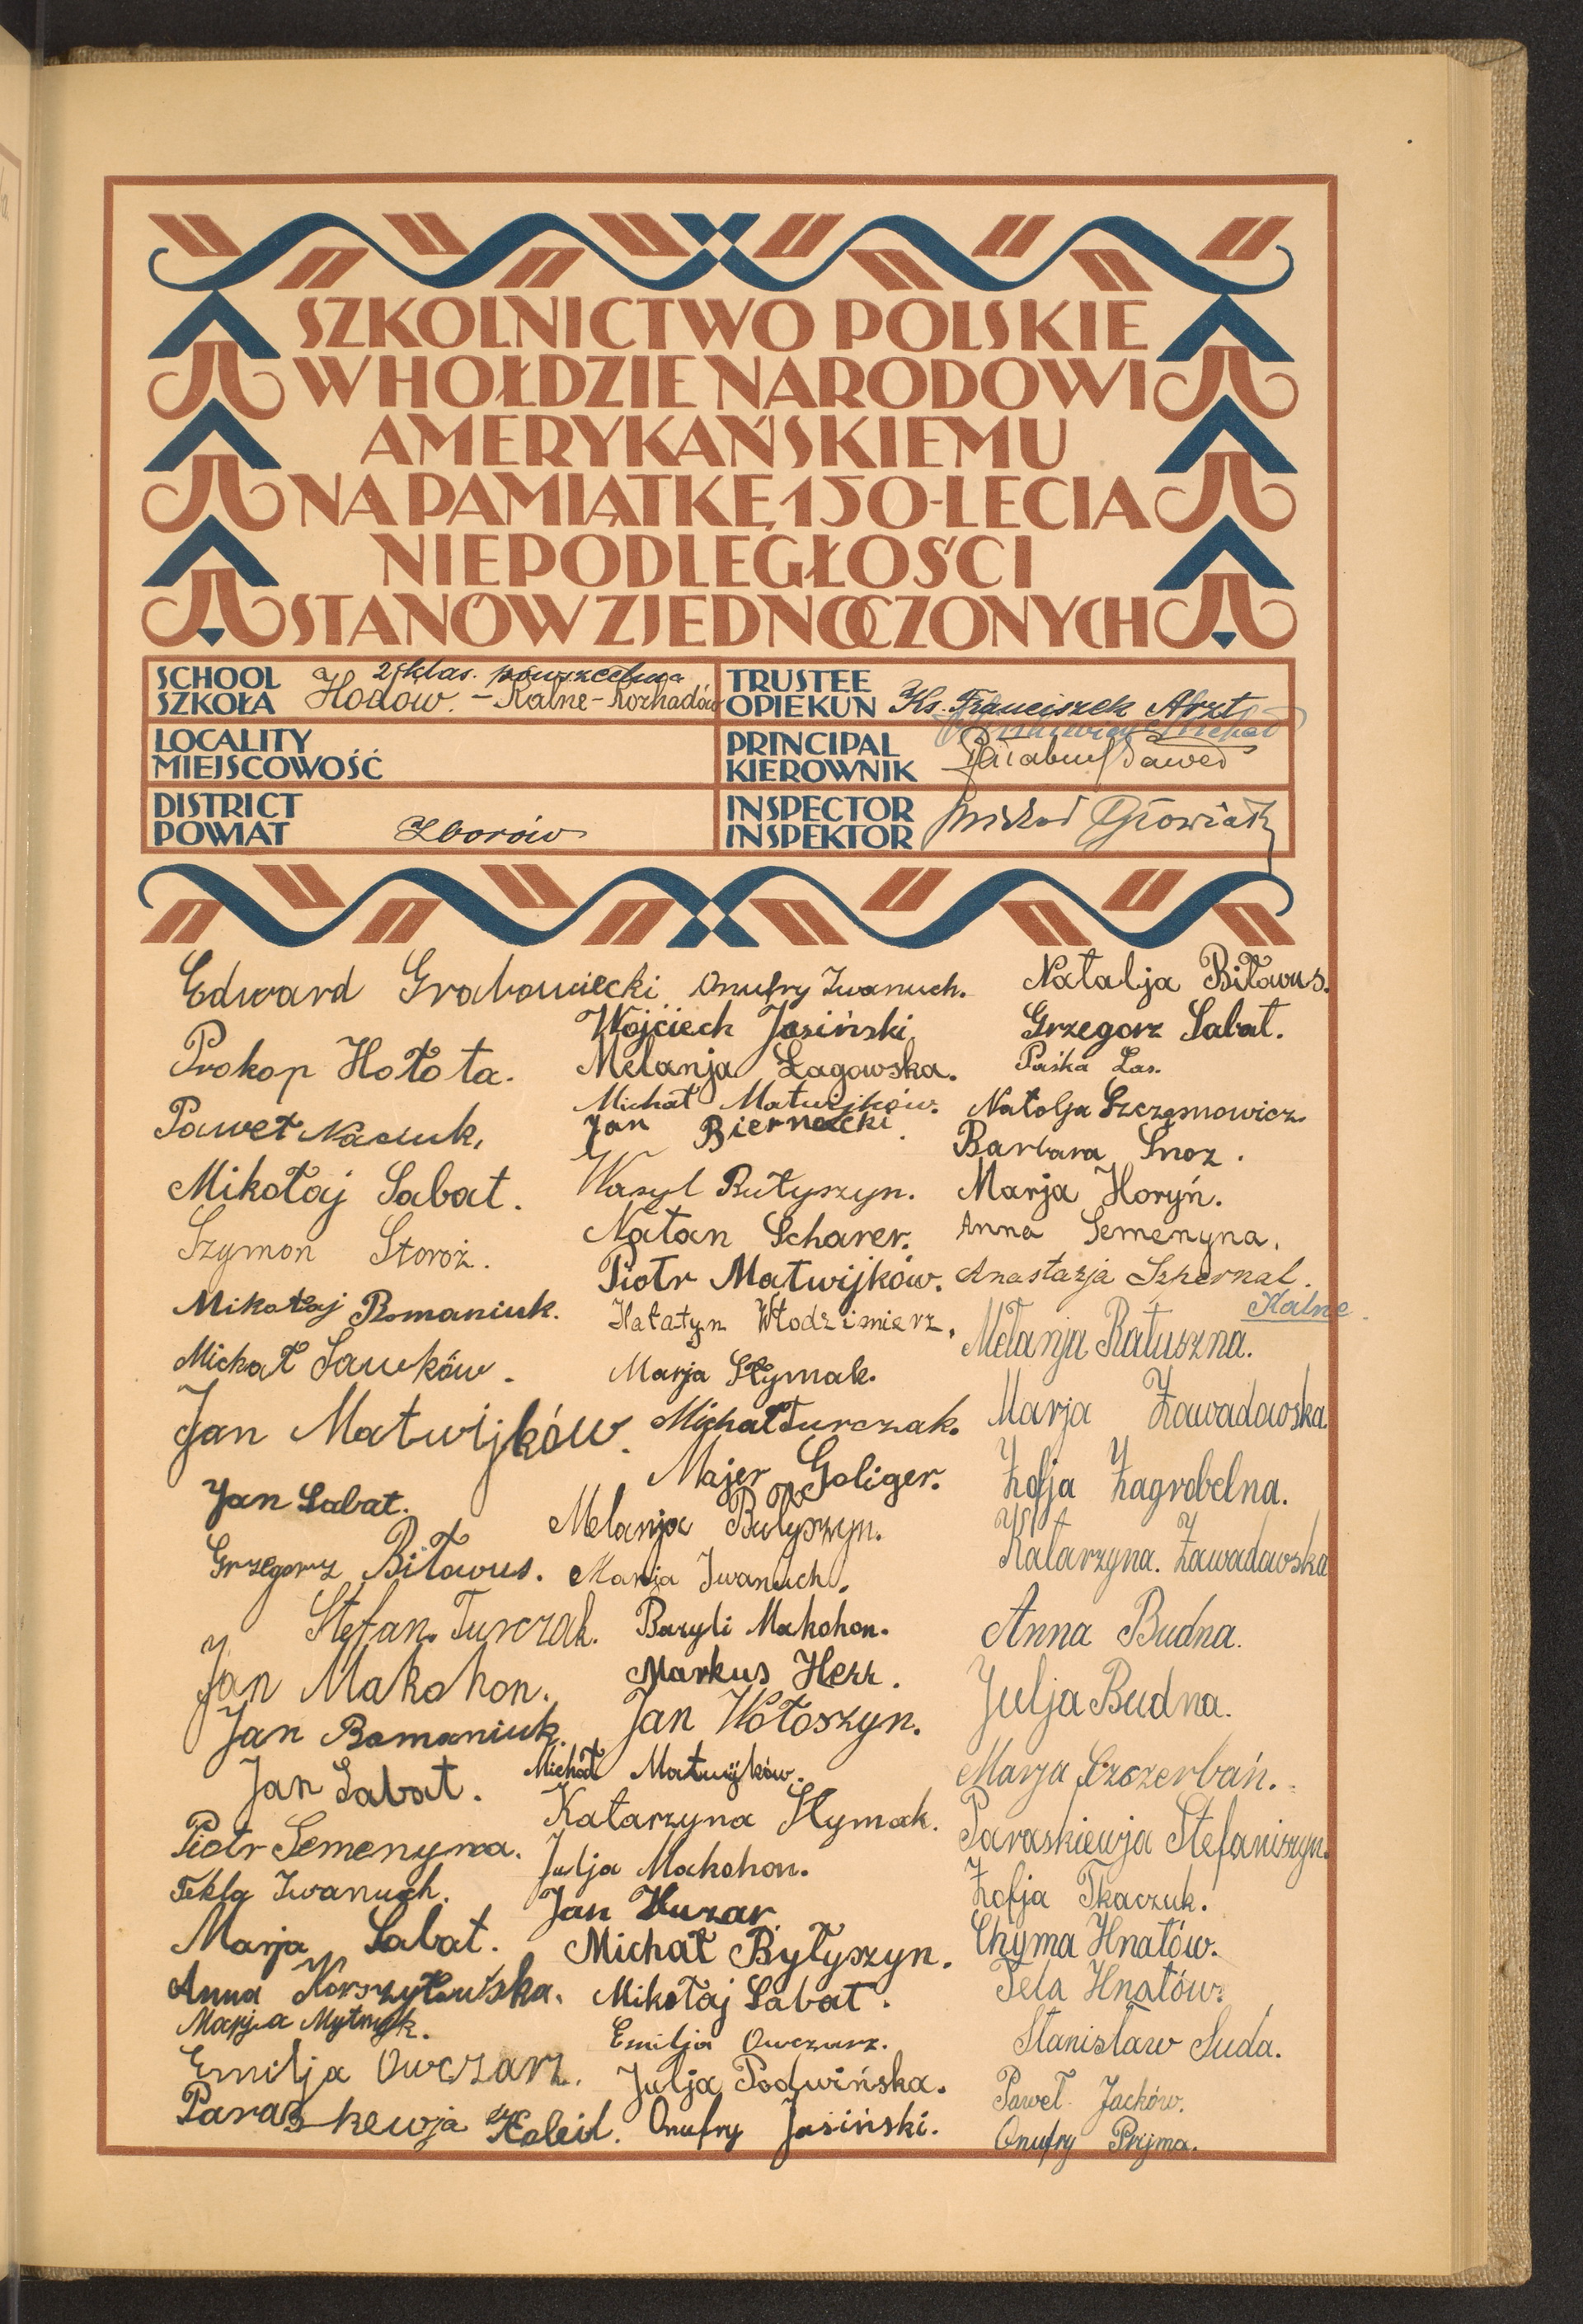 SZKOLNICTWO POLSKIE
W HOŁDZIE NARODOWI
AMERYKAŃSKIEMU
NA PAMIĄTKĘ 150-LECIA
NIEPODLEGŁOŚCI
STANÓW ZJEDNOCZONYCH
SCHOOL
SZKOŁA
2 klas. powszechna
Hodów. – Kalne – Rozhadów
TRUSTEE
OPIEKUN
Ks. Franciszek Arzt
LOCALITY
MIEJSCOWOŚĆ
PRINCIPAL
KIEROWNIK
DISTRICT
POWIAT
Zborów
INSPECTOR
INSPEKTOR
Edward Grabowiecki
Prokop Hołota.
Paweł
Mikołaj Sabat.
Szymon Storoż.
Mikołaj Romaniuk.
Michał Sawków.
Jan Matwijków.
Jan Sabat.
Grzegorz Biłowus.
Stefan Turczak.
Jan Makohon.
Jan Romaniuk.
Jan Sabat.
Piotr Semenyna.
Tekla Iwanuch.
Marja Sabat.
Anna Korszyłowska.
Marja Mytnyk.
Emilja Owczarz.
Paraskewja
Onufry Iwanuch.
Wojciech Jasiński
Melanja Łagowska.
Michał Matwijków.
Jan Biernacki.
Wasyl Butyszyn.
Natan Scharer.
Piotr Matwijków.
Hałatyn Włodzimierz.
Marja Słymak.
Michał Turczak.
Majer Goliger.
Melanja Butyszyn.
Marja Iwanuch.
Bazyli Makohon.
Markus Herz.
Jan Wołoszyn.
Michał Matwijków.
Katarzyna Słymak.
Julja Makohon.
Jan Huzar.
Michał Bytyszyn.
Mikołaj Sabat.
Emilja Owczarz.
Julja Podwińska.
Onufry Jasiński.
Natalja Biłowus.
Grzegorz Sabat.
Pańka Las.
Natalja Szczęsnowicz.
Barbara Snoz.
Marja Horyń.
Anna Semenyna.
Anastazja Szpernal.
Kalne.
Mełanja Ratuszna.
Marja Zawadowska
Zofja Zagrobelna.
Katarzyna. Zawadowska
Anna Budna.
Julja Budna.
Marja Szczerbań.
Paraskiewja Stefaniszyn.
Zofja Tkaczuk.
Chyma Hnatów.
Tela Hnatów.
Stanisław Suda.
Paweł Jacków.
Onufry Pryjma.